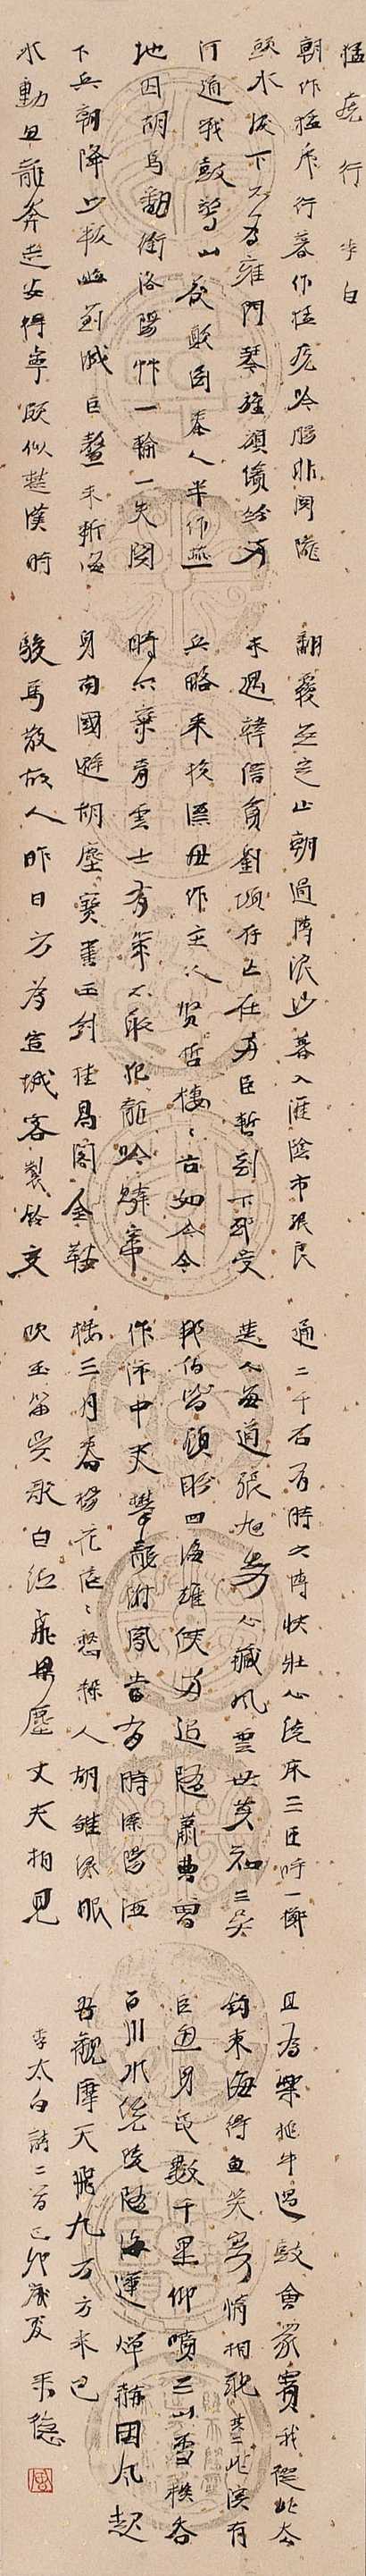 猛虎行李白
朝作猛虎行暮作猛虎吟腸非關隴
頭水淚下不為雍門琴旌旗繽紛兩
河道戰鼓驚山欲傾倒秦人半作燕
地囚胡馬翻銜洛陽草一輸一失關
下兵朝降夕叛幽薊城巨鰲未斬海
水動魚龍奔走安得寧頗似楚漢時
翻覆無定止朝過博浪沙暮入淮陰市張良
未遇韓信貧劉項存亡在兩臣暫到下邳受
兵略來投漂母作主人賢哲棲〻古如今今
時亦棄青雲士有策不敢犯龍鱗竄
身南國避胡塵寶書玉劍挂高閣金鞍
駿馬散故人昨日方為宣城客掣鈴交
通二千石有時六博快壯心繞床三匝呼一擲
楚人每道張旭奇心藏風雲世莫知三吳
邦伯皆顧盼四海雄俠兩追隨蕭曹曾
作沛中吏攀龍附鳳當有時溧陽酒
樓三月春楊花茫〻愁殺人胡雛綠眼
吹玉笛吳歌白紵飛梁塵丈夫相見
且為樂槌牛撾鼓會眾賓我從此去
釣東海得魚笑寄情相親 北溟有
巨魚身長數千里仰噴三山雪橫吞
百川水憑陵隨海運燀赫因風起
吾觀摩天飛九萬方未已
李太白詩二首己卯歲夏